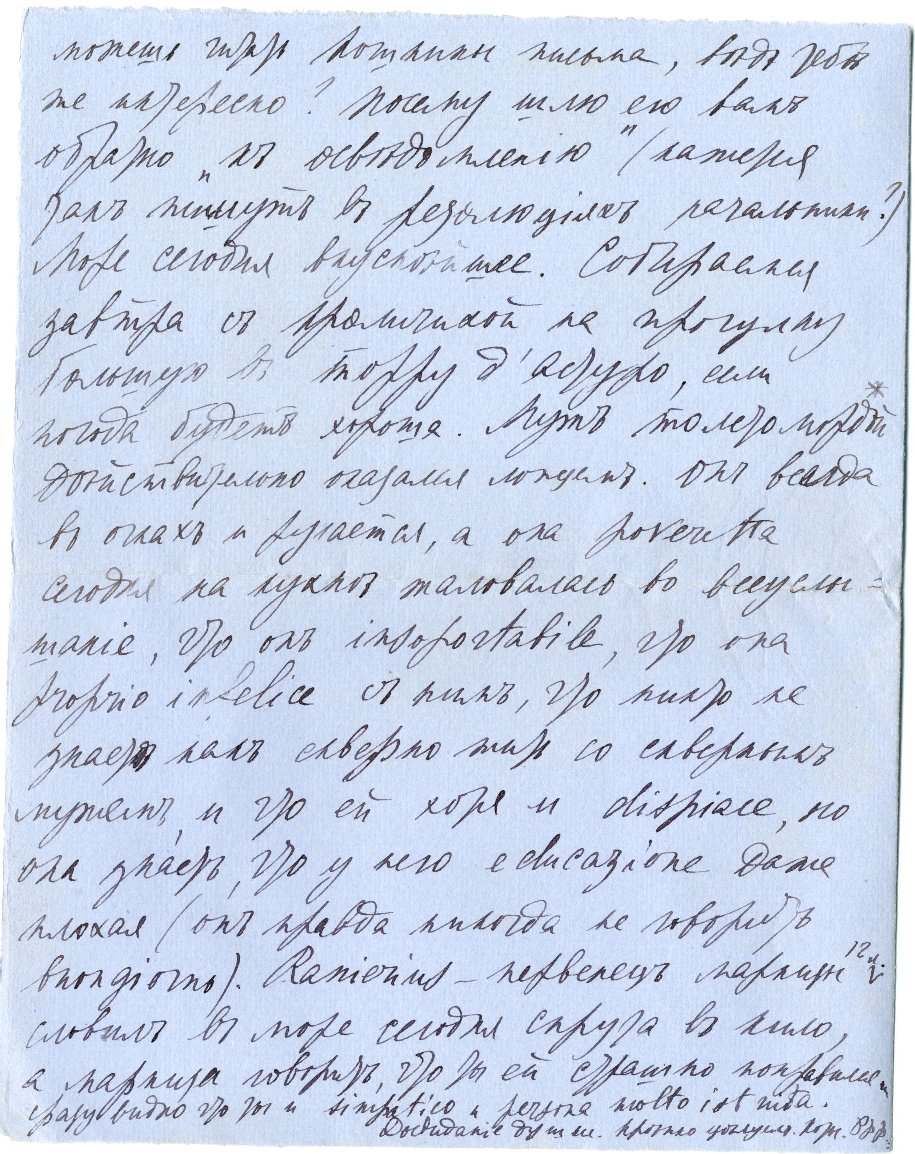 можешь читать Кошкины письма, вѣдь тебѣ
же интересно? Посему шлю ею вамъ
обратно „къ освѣдомленію" (кажется
такъ пишутъ в резолюціяхъ начальники?)
Море сегодня вкуснѣйшее. Собираемся
завтра съ на прогулку
большую въ Торру д'Астуро, если
погода будетъ хороша. Мужъ толстомордой
дѣйствительно оказался лжецемъ. Онъ всегда
въ очкахъ и ругается, а она poveretta
сегодня на кухнѣ жаловалась во всеуслы=
шаніе, что онъ insoportabile, что она
proprio infelice съ нимъ, что никто не
знаетъ какъ скверно жить со сквернымъ
мужемъ, и что ей хотя и dispiace, но
она знаетъ, что у него educazione даже
плохая (онъ правда никогда не говоритъ
buongiorno). Ranierius – первенецъ маркизы 12 л.
словилъ въ море сегодня спрута въ кило,
а маркиза говоритъ, что ты ей страшно понравился и
сразу видно что ты и simpatico и persona molto
Досвиданіе душ. крѣпко цѣлую.